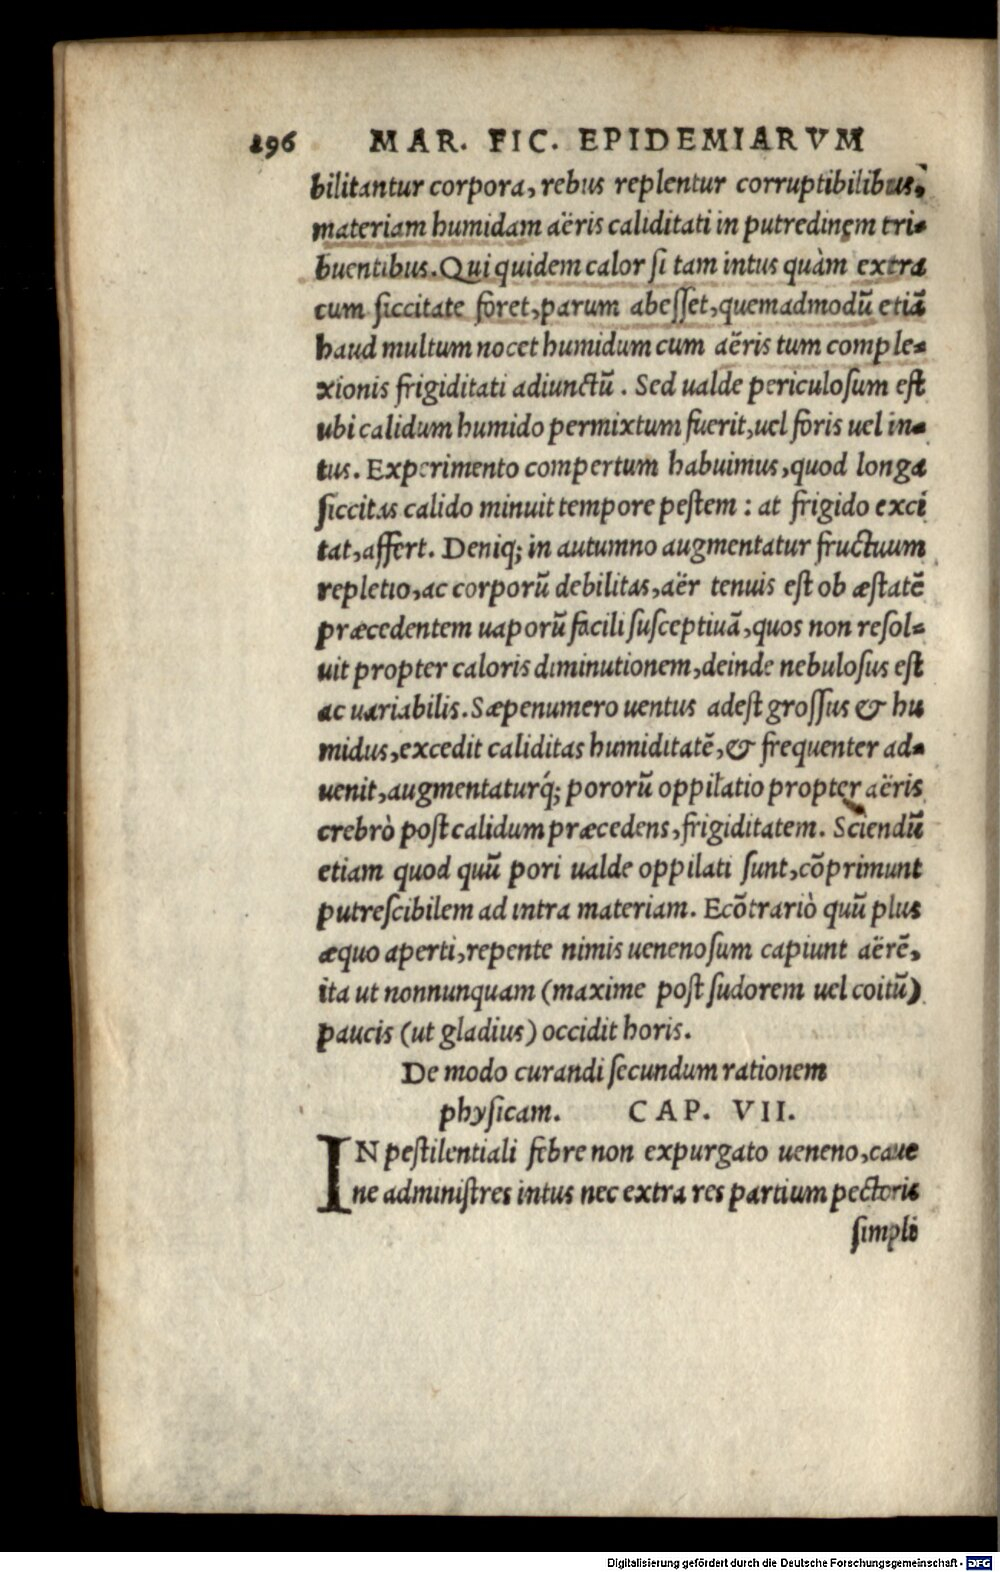 296 MAR. FIC. EPIDEMIARVM
bilitantur corpora, rebus replentur corruptibilibus,
materiam humidam aëris caliditati in putredinem tri-
buentibus. Qui quidem calor si tam intus quàm extra
cum siccitate foret, parum abesset, quemadmodū etiā
haud multum nocet humidum cum aëris tum comple-
xionis frigiditati adiunctū. Sed ualde periculosum est
ubi calidum humido permixtum fuerit, uel foris uel in-
tus. Experimento compertum habuimus, quod longa
siccitas calido minuit tempore pestem : at frigido exci
tat, affert. Deniq; in autumno augmentatur fructuum
repletio, ac corporū debilitas, aër tenuis est ob æstatē
præcedentem uaporū facili susceptiuā, quos non resol-
uit propter caloris diminutionem, deinde nebulosus est
ac uariabilis. Sæpenumero uentus adest grossus & hu
midus, excedit caliditas humiditatē, & frequenter ad-
uenit, augmentaturq́; pororū oppilatio propter aëris
crebrò post calidum præcedens, frigiditatem. Sciendū
etiam quod quū pori ualde oppilati sunt, cōprimunt
putrescibilem ad intra materiam. Ecōtrariò quū plus
æquo aperti, repente nimis uenenosum capiunt aërē,
ita ut nonnunquam (maxime post sudorem uel coitū)
paucis (ut gladius) occidit horis.
De modo curandi secundum rationem
physicam. CAP. VII.
IN pestilentiali febre non expurgato ueneno, caue
ne administres intus nec extra res partium pectoris
simpli
Digitalisierung gefördert durch die Deutsche Forschungsgemeinschaft - DFG